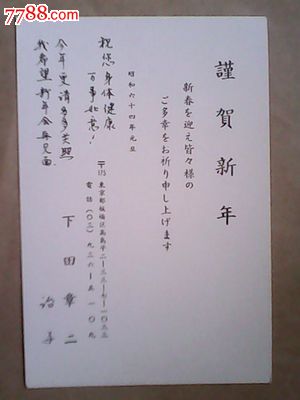 7788.com
謹賀新年
新春を迎え皆々様の
ご多幸をお祈り申し上げます
昭和六十四年元旦
祝您身体健康
百事如意!
今年更请多多关照
我希望新年会再见面
〒175 東京都板橋区高島平二ー三三ー七ー一〇三三
電話(〇三)九三六ー五一〇九
下田章二